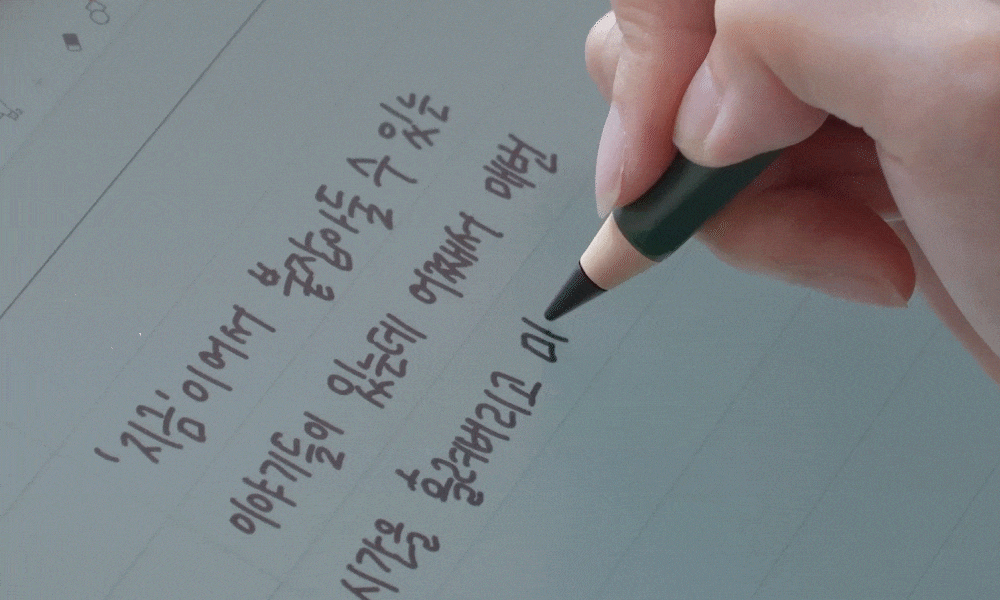 '지금'이어서 붙잡아둘 수 있는
이야기들이 있는데 어째서 매번
시간을 흘려버리고 마